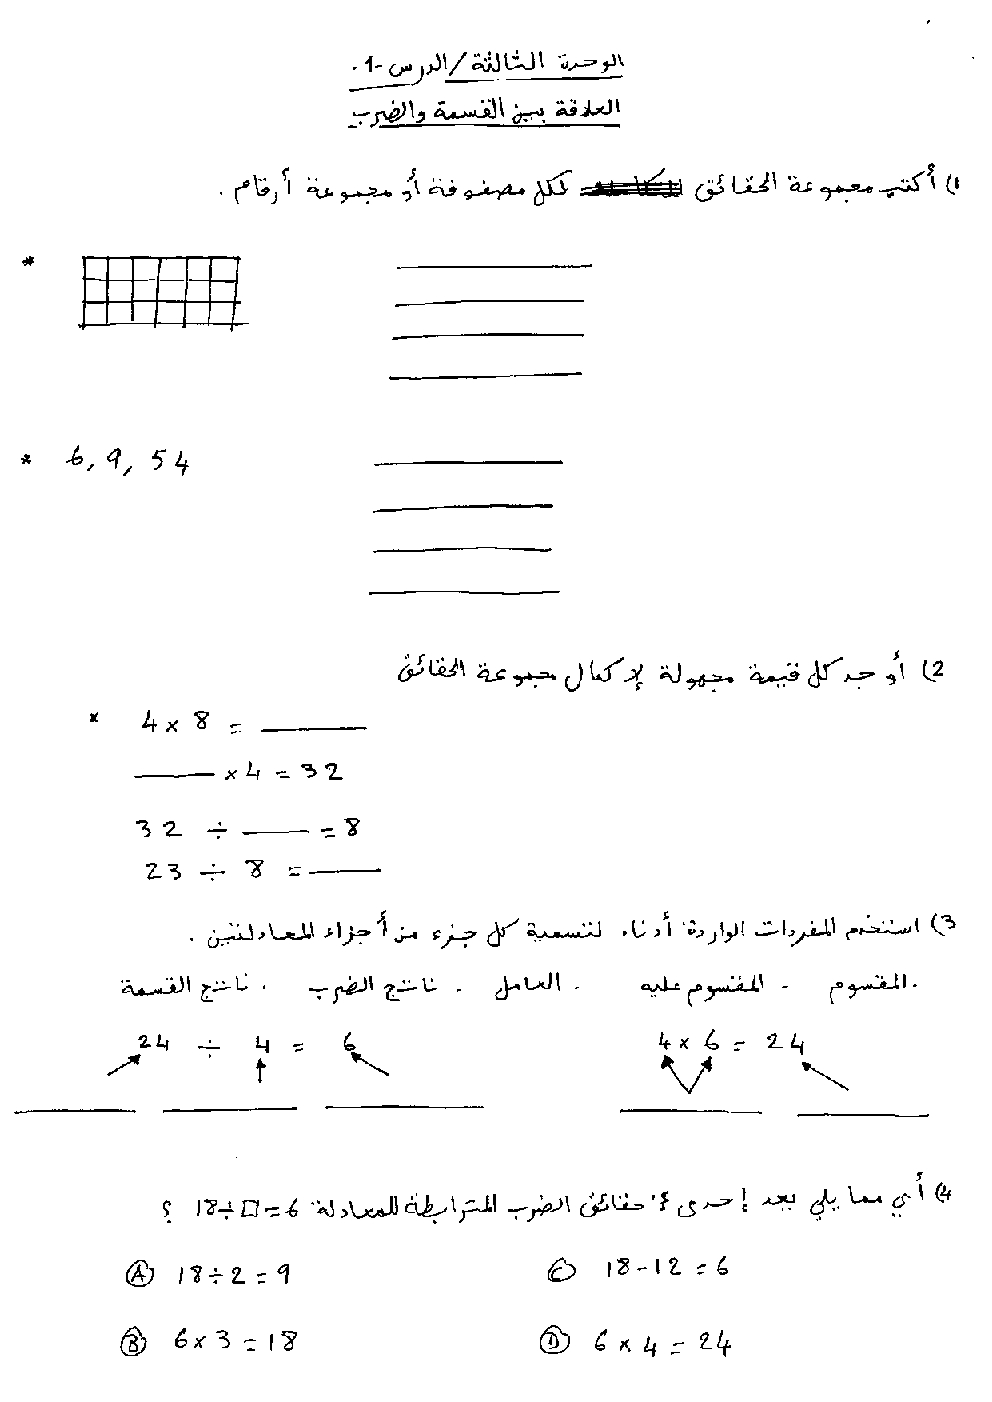 الوحدة الثالثة/الدرس -1.
العلاقة بين القسمة والضرب
1) أكتب مجموعة الحقائق لكل مصفوفة أو مجموعة أرقام.
*
* 6, 9, 54
2) أوجد كل قيمة مجهولة لإكمال مجموعة الحقائق
* 4 x 8 = ____
____ x 4 = 32
32 ÷ ____ = 8
23 ÷ 8 = ____
3) استخدم المفردات الواردة أدناه لتسمية كل جزء من أجزاء المعادلتين.
.المقسوم . المقسوم عليه . العامل . ناتج الضرب . ناتج القسمة
24 ÷ 4 = 6 4 x 6 = 24
4) أي مما يلي يعد إحدى حقائق الضرب المترابطة للمعادلة 18÷□=6 ؟
Ⓐ 18÷2=9 Ⓒ 18-12=6
Ⓑ 6x3=18 Ⓓ 6x4=24